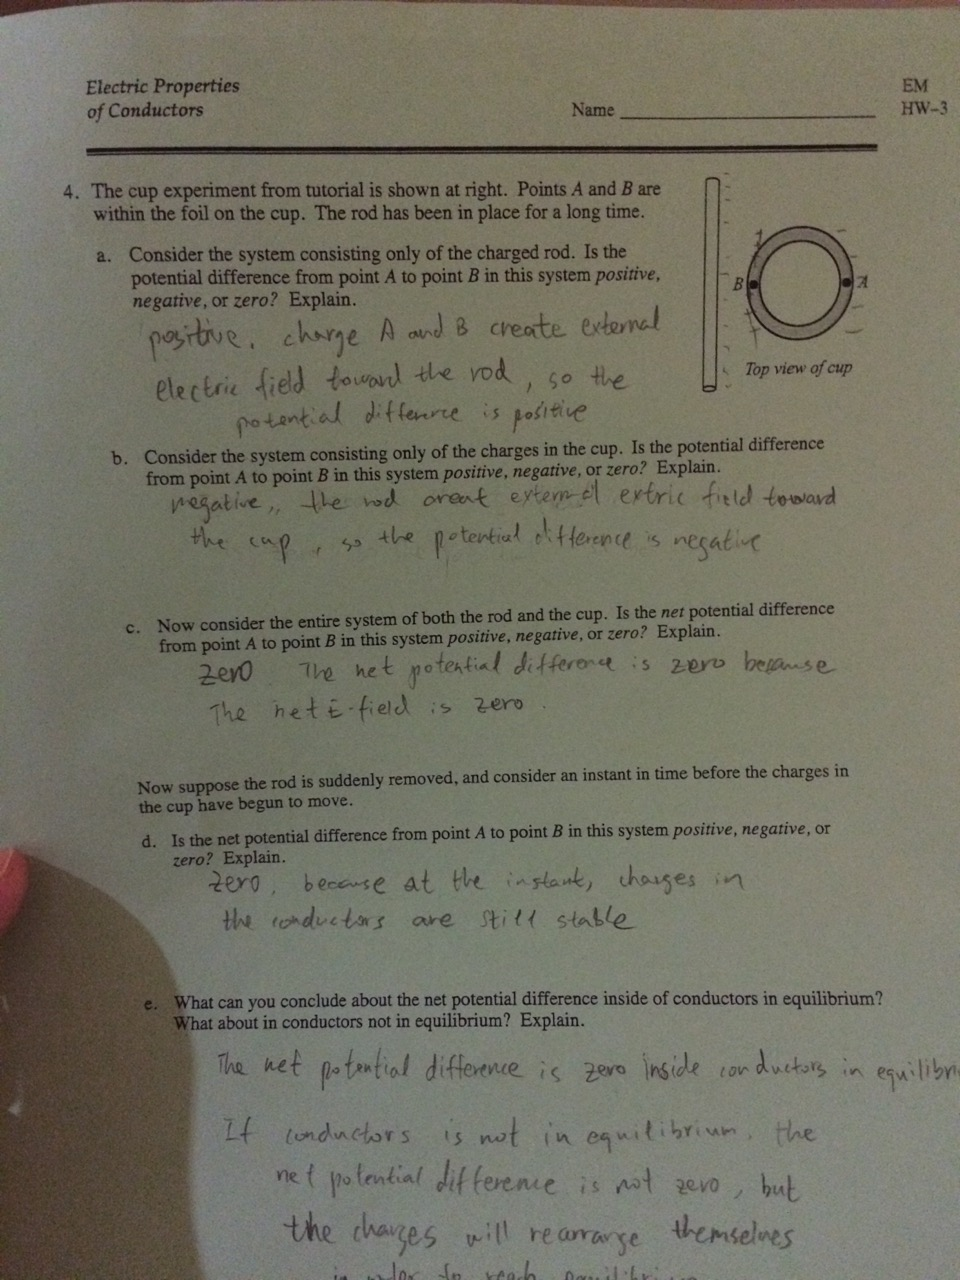 Electric Properties
of Conductors
Name
EM
HW-3
4. The cup experiment from tutorial is shown at right. Points A and B are
within the foil on the cup. The rod has been in place for a long time.
a. Consider the system consisting only of the charged rod. Is the
potential difference from point A to point B in this system positive,
negative, or zero? Explain.
positive, charge A and B create external
electric field toward the rod, so the
potential difference is positive
B
A
Top view of cup
b. Consider the system consisting only of the charges in the cup. Is the potential difference
from point A to point B in this system positive, negative, or zero? Explain.
negative,, the rod creat external extric field toward
the cup, so the potential difference is negative
c. Now consider the entire system of both the rod and the cup. Is the net potential difference
from point A to point B in this system positive, negative, or zero? Explain.
Zero The net potential difference is zero because
The net E-field is zero.
Now suppose the rod is suddenly removed, and consider an instant in time before the charges in
the cup have begun to move.
d. Is the net potential difference from point A to point B in this system positive, negative, or
zero? Explain.
Zero, because at the instant, charges in
the conductors are still stable
e. What can you conclude about the net potential difference inside of conductors in equilibrium?
What about in conductors not in equilibrium? Explain.
The net potential difference is zero inside conductors in equilibri
If conductors is not in equilibrium, the
net potential difference is not zero, but
the charges will rearrange themselves
in order to reach